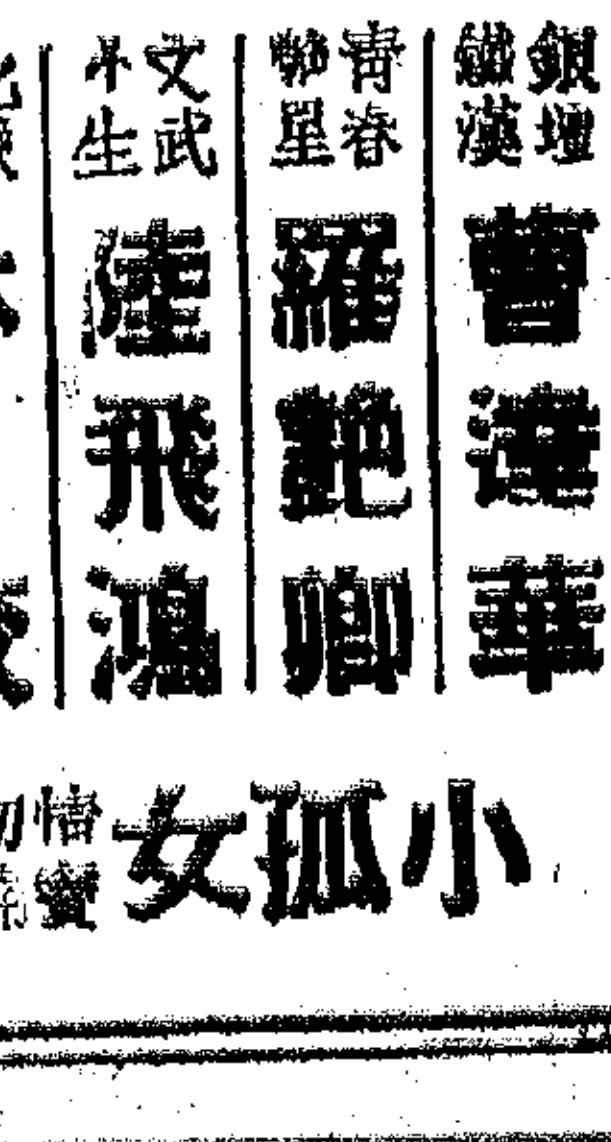 銀壇
鐵漢
曹達華
青春
艷星
羅艷卿
文武
小生
陸飛鴻
小孤女
情